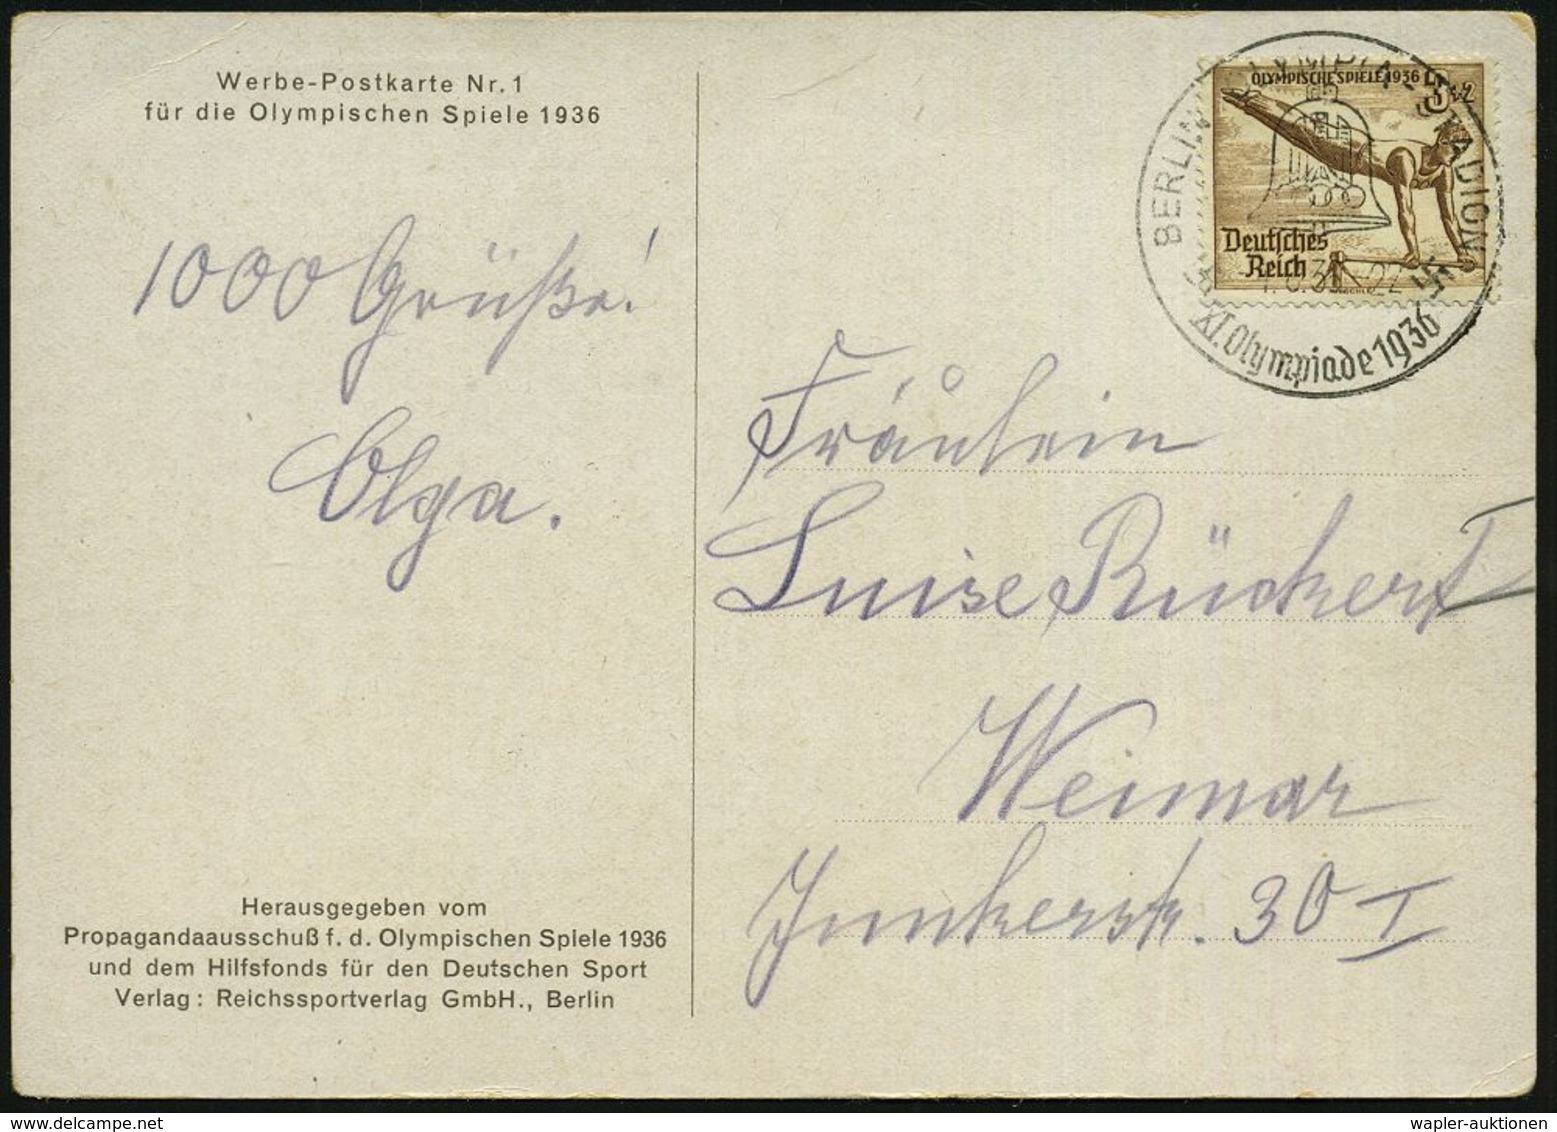 Werbe-Postkarte Nr. 1
für die Olympischen Spiele 1936
1000 Grüße!
Olga.
Herausgegeben vom
Propagandaausschuß f. d. Olympischen Spiele 1936
und dem Hilfsfonds für den Deutschen Sport
Verlag: Reichssportverlag GmbH., Berlin
OLYMPISCHE SPIELE 1936
3+2
Deutsches
Reich
BERLIN OLYMPIA-STADION
XI. Olympiade 1936
Fräulein
Luise Rückert
Weimar
Junkerstr. 30 I
wapler-auktionen